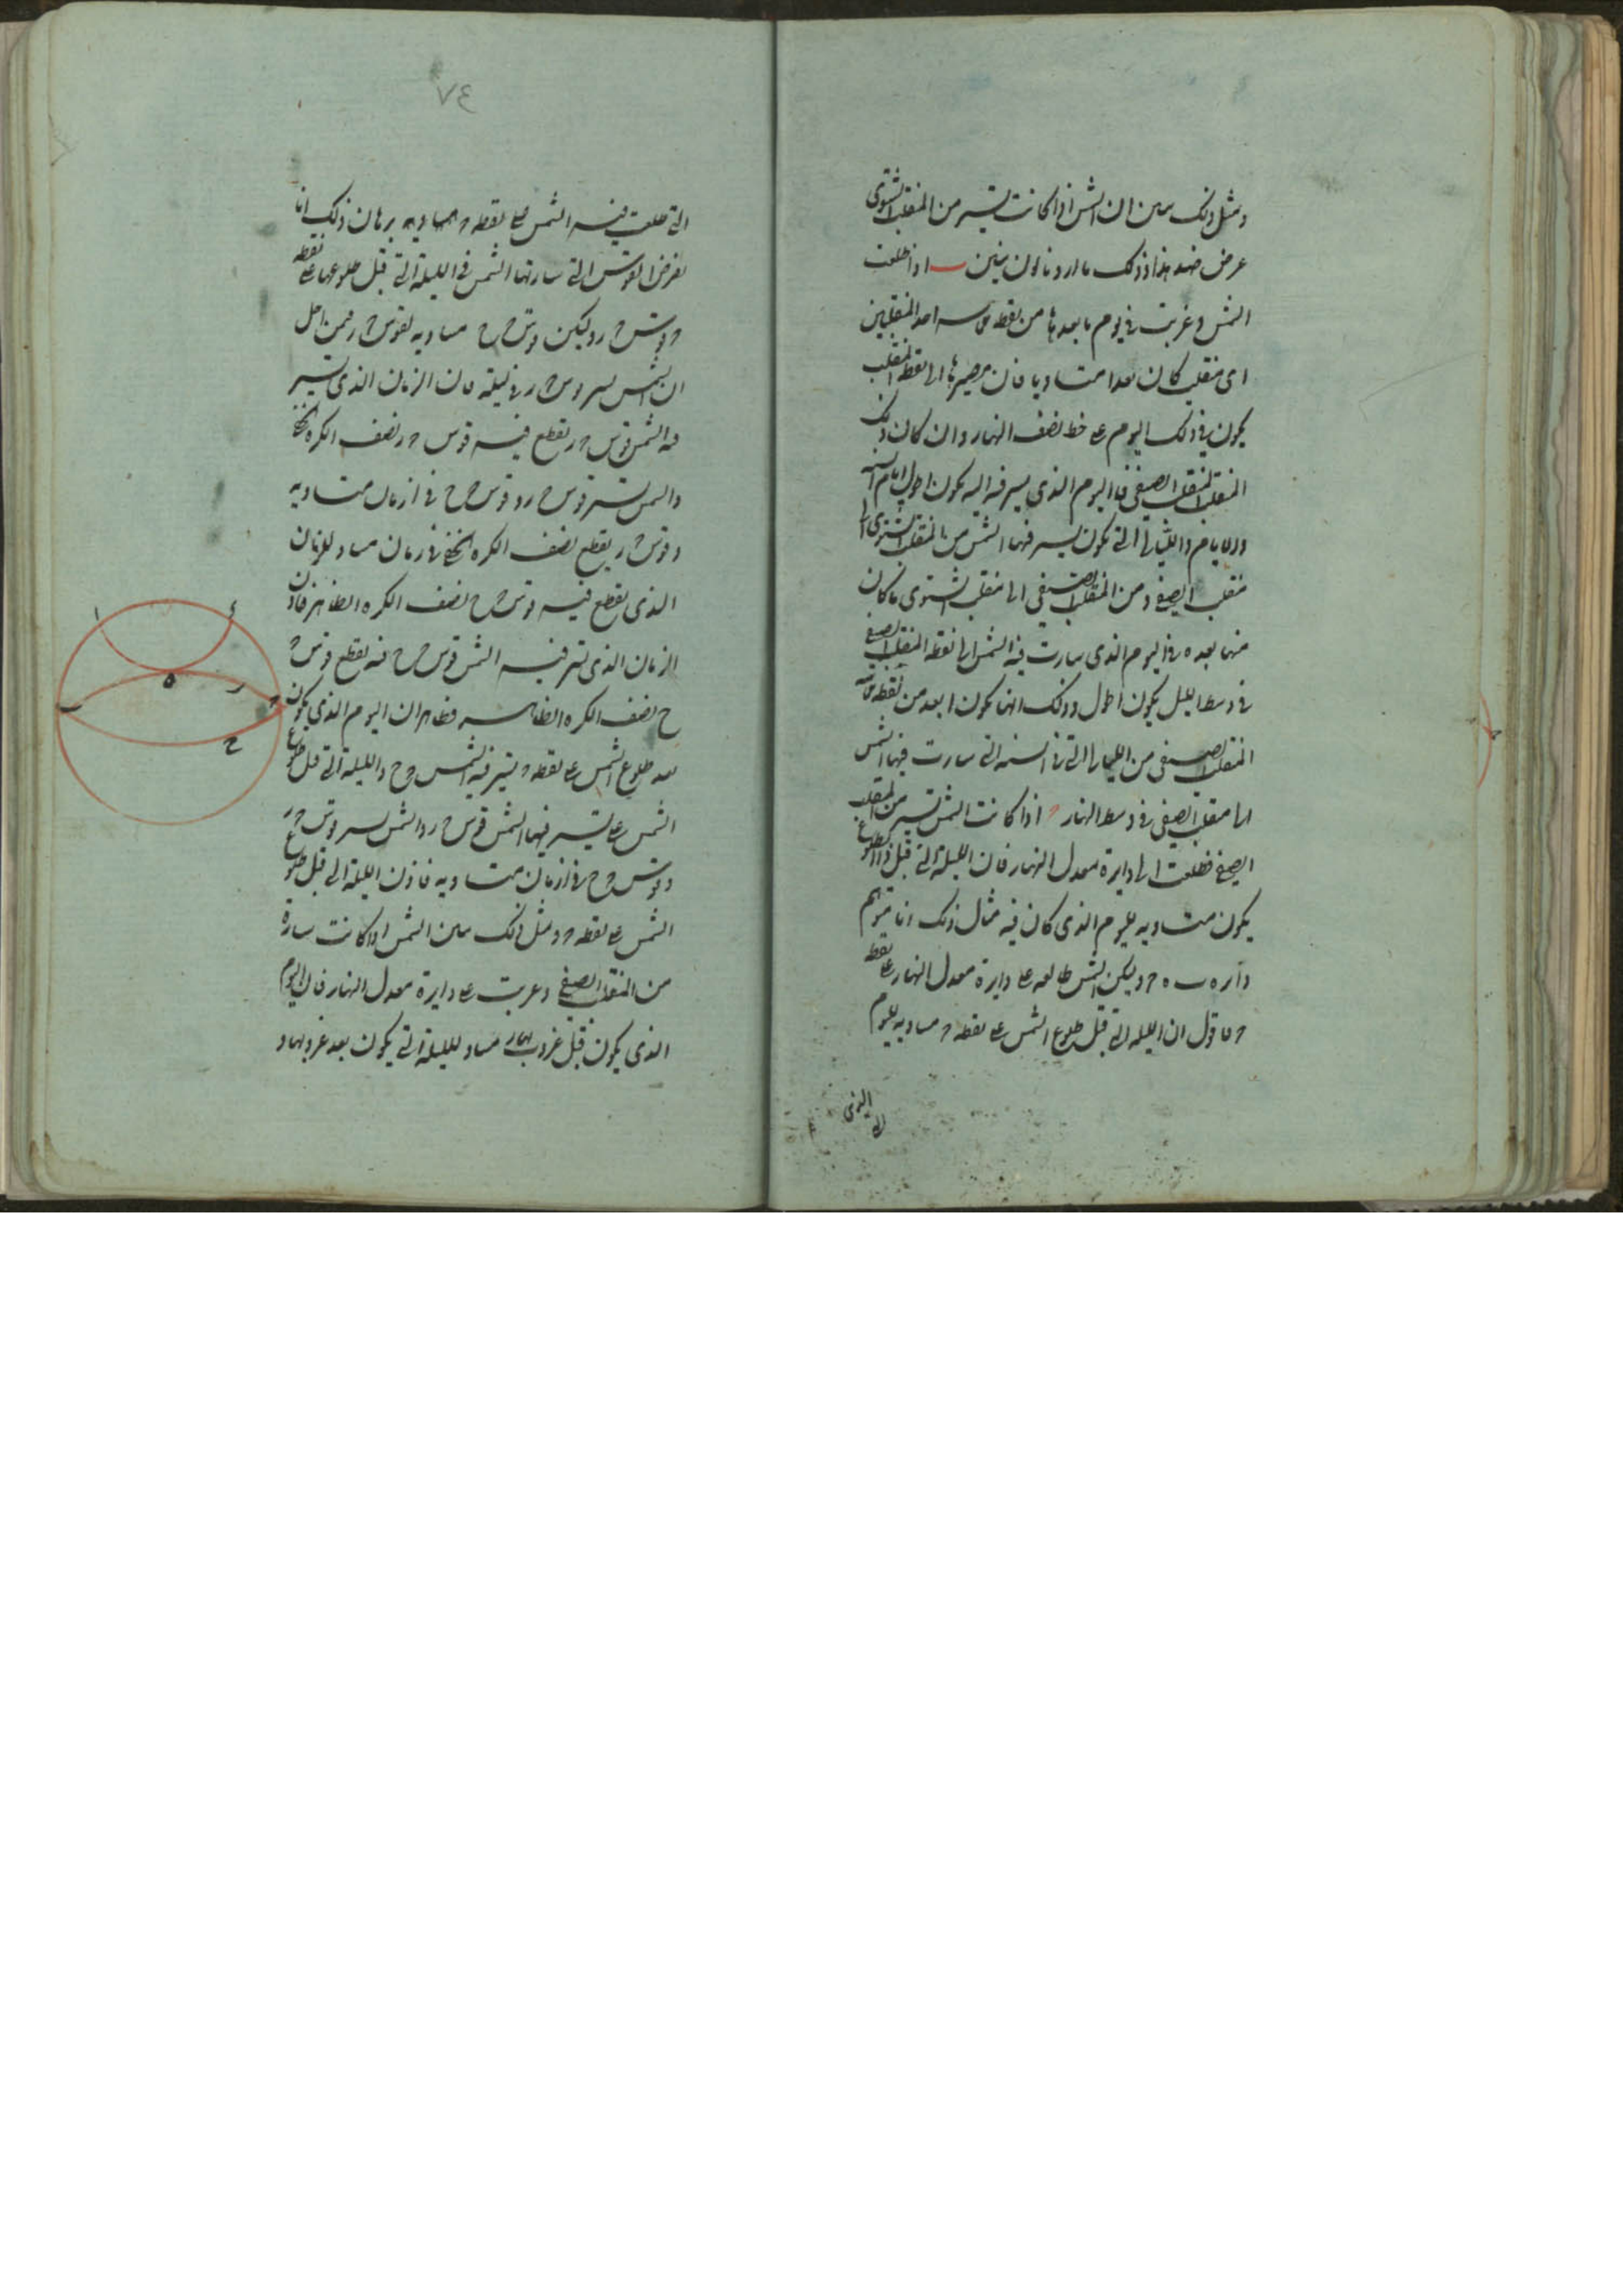 ومثل ذلك يبين ان الشمس اذا كانت تسير من المنقلب الشتوى
عرض ضد هذا وذلك ما اردنا ان نبين ب اذا طلعت
الشمس وغربت فى يوم ما بعدها من نقطة احد المنقلبين
اى منقلب كان بعدا متساويا فان مصيرها الى نقطة المنقلب
يكون فى ذلك اليوم على خط نصف النهار وان كان ذلك
المنقلب المنقلب الصيفى فاليوم الذى يسير فيه اليه يكون اطول ايام السنة
والايام والليالى التى يكون يسير فيها الشمس من المنقلب الشتوى الى
منقلب الصيفى ومن المنقلب الصيفى الى منقلب الشتوى ما كان
منها بعده فى اليوم الذى سارت فيه الشمس الى نقطة المنقلب الصيفى
فى وسط الليل يكون اطول وذلك انها يكون ابعد من نقطة
المنقلب الصيفى من الليالى التى فى السنة التى سارت فيها الشمس
الى منقلب الصيفى فى وسط النهار ج اذا كانت الشمس تسير من المنقلب
الصيفى فطلعت الى دايرة معدل النهار فان الليلة التى قبل ذلك الطلوع
يكون متساويه لليوم الذى كان فيه مثال ذلك انا نتوهم
دايره ب ه ج وليكن الشمس طالعه على دايرة معدل النهار على نقطة
ج فاقول ان الليله التى قبل طلوع الشمس على نقطه ج مساويه لليوم
٧٤
التى طلعت فيه الشمس على نقطه ج برهان ذلك انا
نفرض القوس التى سارتها الشمس فى الليلة التى قبل طلوعها على نقطة
ج قوس ج ر وليكن قوس ج ح مساويه لقوس ج ر فمن اجل
ان الشمس تسير قوس ج ر فى ليلة فان الزمان الذى تسير
فيه الشمس قوس ج ر يقطع فيه قوس ج ر نصف الكره الخفى
والشمس تسير قوس ج ر وقوس ج ح فى ازمان متساويه
وقوس ج ر يقطع نصف الكره الخفى فى زمان مساو للزمان
الذى يقطع فيه قوس ج ح نصف الكره الظاهر فاذن
الزمان الذى تسير فيه الشمس قوس ج ح فيه يقطع قوس ج
ح نصف الكره الظاهر فظاهر ان اليوم الذى يكون
بعد طلوع الشمس على نقطه ج تسير فيه الشمس ج ح والليلة التى قبل طلوع
الشمس تسير فيها الشمس قوس ج ر والشمس تسير قوس ج ر
وقوس ج ح فى ازمان متساويه فاذن الليلة التى قبل طلوع
الشمس على نقطه ج ومثل ذلك يبين الشمس اذا كانت سايرة
من المنقلب الصيفى وغربت على دايرة معدل النهار فان اليوم
الذى يكون قبل غروب مساو لليلة التى يكون بعد غروبها و
ا
ه
ر
ج
ب
ح